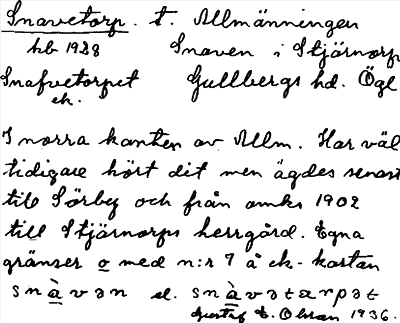 Snavetorp. t. Allmänningen
hb 1928 Snaven i Stjärnorp
Snafvetorpet Gullbergs hd. Ögl
ek.
I norra kanten av Allm. Har väl
tidigare hört dit men ägdes senast
till Sörby och från omkr 1902
till Stjärnorps herrgård. Egna
gränser o med n:r 7 å ek-kartan
snàvən el. snàvətarpət
Gustaf E. Olsson 1936.